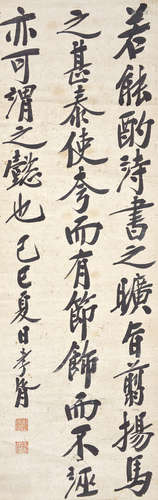 若能酌詩書之曠旨翦揚馬
之甚泰使夸而有節飾而不誣
亦可謂之懿也己巳夏日孝胥